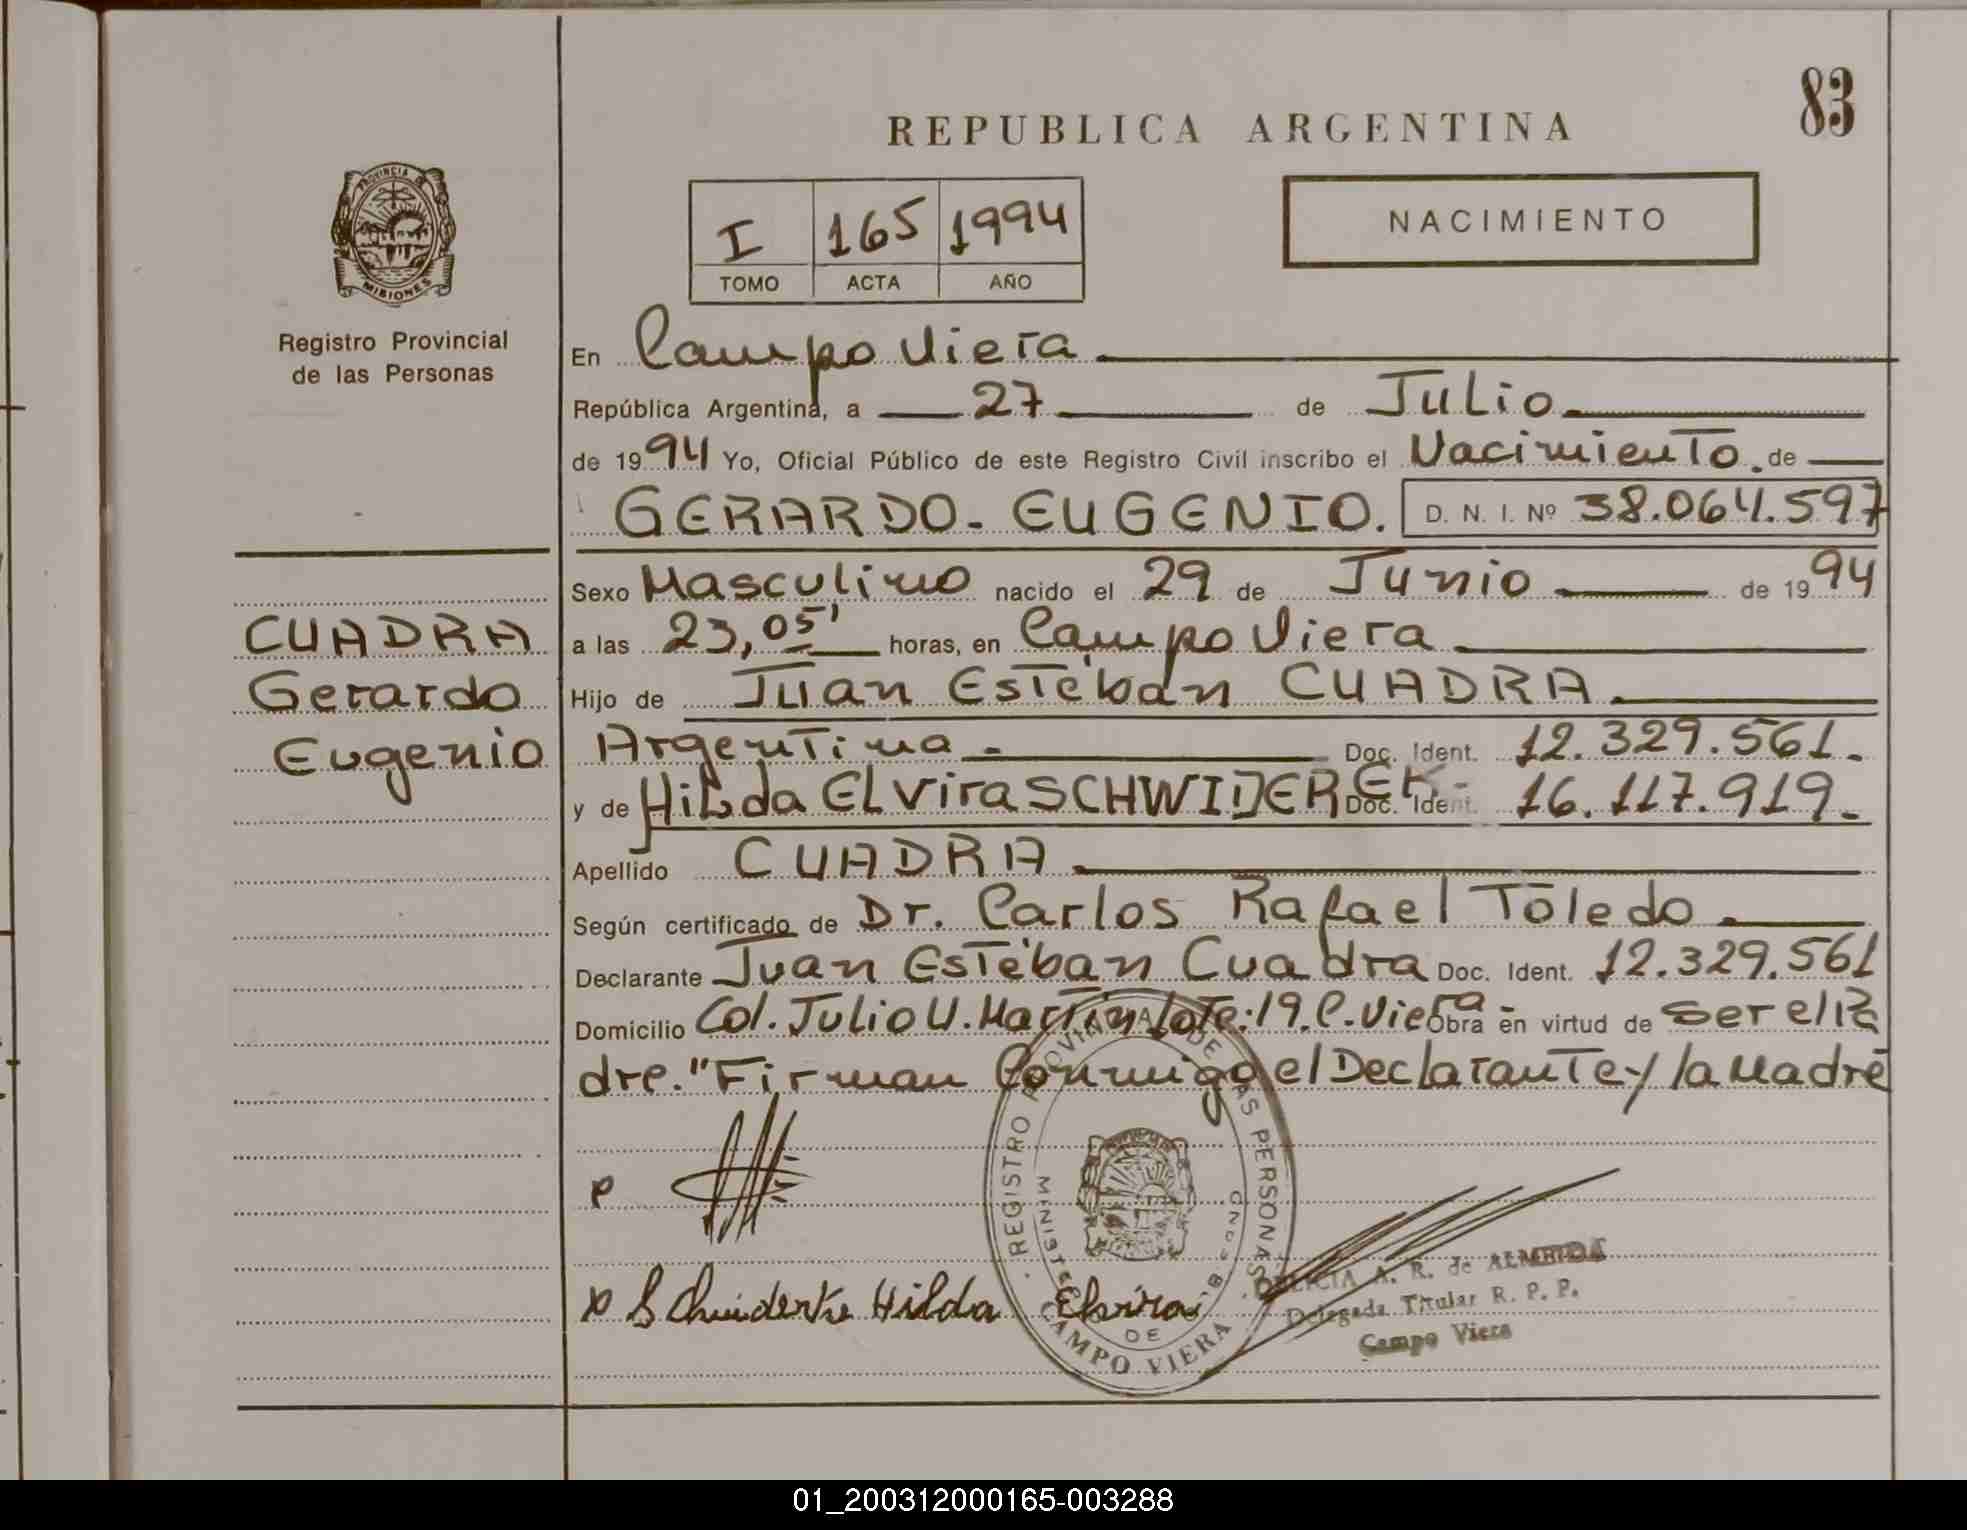 83
REPUBLICA ARGENTINA
PROVINCIA DE
MISIONES
Registro Provincial
de las Personas
I 165 1994
TOMO ACTA AÑO
NACIMIENTO
En Campo Viera
República Argentina, a 27 de Julio
de 1994 Yo, Oficial Público de este Registro Civil inscribo el Nacimiento. de
GERARDO - EUGENIO. D. N. I. Nº 38.064.597
CUADRA
Gerardo
Eugenio
Sexo Masculino nacido el 29 de Junio de 1994
a las 23,05' horas, en Campo Viera
Hijo de Juan Esteban CUADRA.
Argentina - Doc. Ident. 12.329.561.
y de Hilda Elvira SCHWIDEREK - Doc. Ident. 16.117.919.
Apellido CUADRA
Según certificado de Dr. Carlos Rafael Toledo.
Declarante Juan Esteban Cuadra Doc. Ident. 12.329.561
Domicilio Col. Julio U. Martin Lote: 19. C. Viera Obra en virtud de ser el Pa
dre. "Firman Conmigo el Declarante y la Madre
REGISTRO PROVINCIAL DE LAS PERSONAS
DE
CAMPO VIERA
Hilda Elvira
A. R. de ALMEIDA
Delegada Titular R. P. P.
Campo Viera
01_200312000165-003288